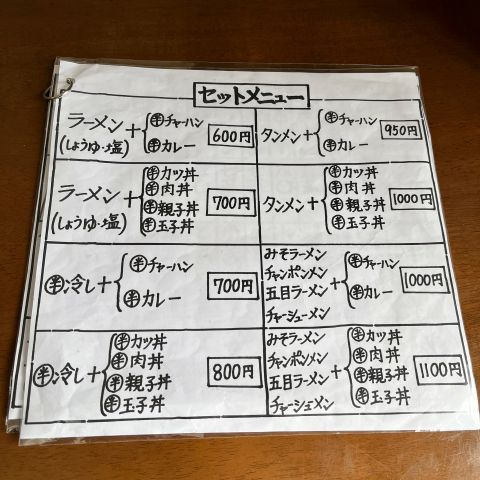 セットメニュー
ラーメン
(しょうゆ・塩)
+
半チャーハン
半カレー
600円
タンメン+
半チャーハン
半カレー
950円
ラーメン
(しょうゆ・塩)
+
半カツ丼
半肉丼
半親子丼
半玉子丼
700円
タンメン+
半カツ丼
半肉丼
半親子丼
半玉子丼
1000円
半冷し+
半チャーハン
半カレー
700円
みそラーメン
チャンポンメン
五目ラーメン
チャーシューメン
+
半チャーハン
半カレー
1000円
半冷し+
半カツ丼
半肉丼
半親子丼
半玉子丼
800円
みそラーメン
チャンポンメン
五目ラーメン
チャーシュメン
+
半カツ丼
半肉丼
半親子丼
半玉子丼
1100円